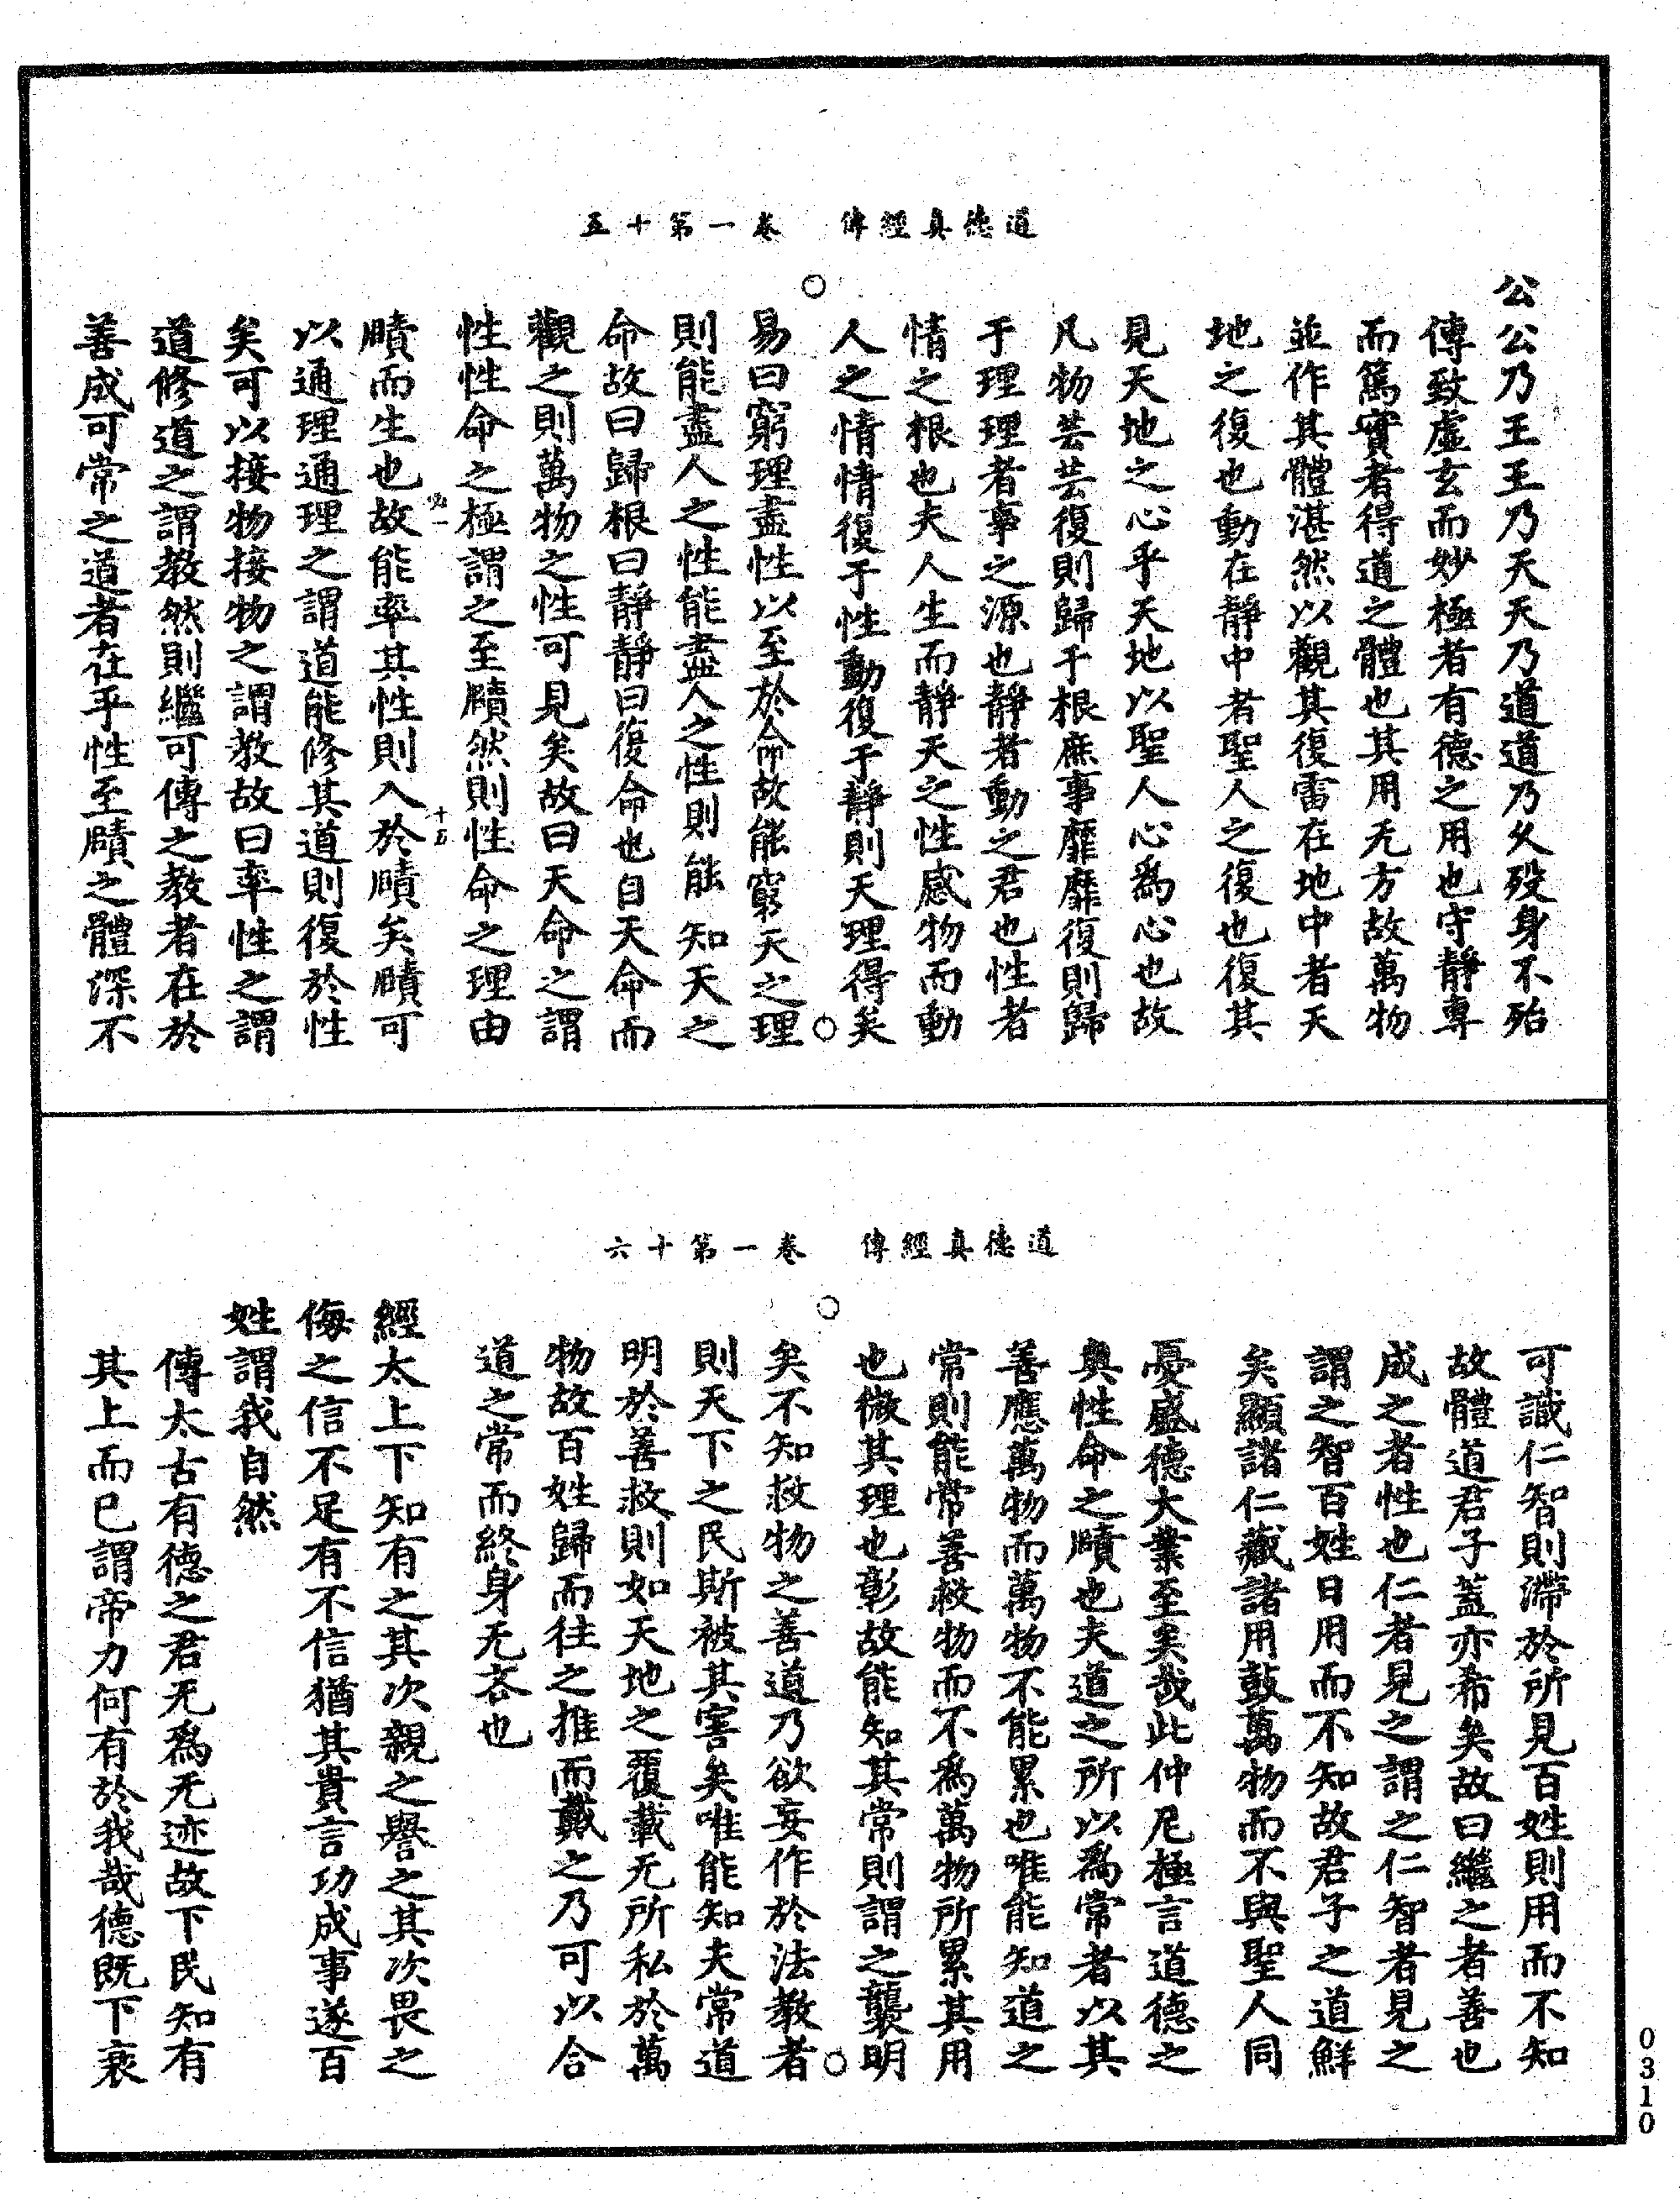 道德真經傳　卷一第十五
公公乃王王乃天天乃道道乃久歿身不殆
傳致虛玄而妙極者有德之用也守靜專
而篤實者得道之體也其用无方故萬物
並作其體湛然以觀其復雷在地中者天
地之復也動在靜中者聖人之復也復其
見天地之心乎天地以聖人心為心也故
凡物芸芸復則歸于根庶事靡靡復則歸
于理理者事之源也靜者動之君也性者
情之根也夫人生而靜天之性感物而動
人之情情復于性動復于靜則天理得矣
易曰窮理盡性以至於命故能窮天之理
則能盡人之性能盡人之性則能知天之
命故曰歸根曰靜靜曰復命也自天命而
觀之則萬物之性可見矣故曰天命之謂
性性命之極謂之至賾然則性命之理由
十五
賾而生也故能率其性則入於賾矣賾可
以通理通理之謂道能修其道則復於性
矣可以接物接物之謂教故曰率性之謂
道修道之謂教然則繼可傳之教者在於
善成可常之道者在乎性至賾之體深不
道德真經傳　卷一第十六
可識仁智則滯於所見百姓則用而不知
故體道君子蓋亦希矣故曰繼之者善也
成之者性也仁者見之謂之仁智者見之
謂之智百姓日用而不知故君子之道鮮
矣顯諸仁藏諸用鼓萬物而不與聖人同
憂盛德大業至矣哉此仲尼極言道德之
奧性命之賾也夫道之所以為常者以其
善應萬物而萬物不能累也唯能知道之
常則能常善救物而不為萬物所累其用
也微其理也彰故能知其常則謂之襲明
矣不知救物之善道乃欲妄作於法教者
則天下之民斯被其害矣唯能知夫常道
明於善救則如天地之覆載无所私於萬
物故百姓歸而往之推而戴之乃可以合
道之常而終身无吝也
經太上下知有之其次親之譽之其次畏之
侮之信不足有不信猶其貴言功成事遂百
姓謂我自然
傳太古有德之君无為无迹故下民知有
其上而已謂帝力何有於我哉德既下衰
0310